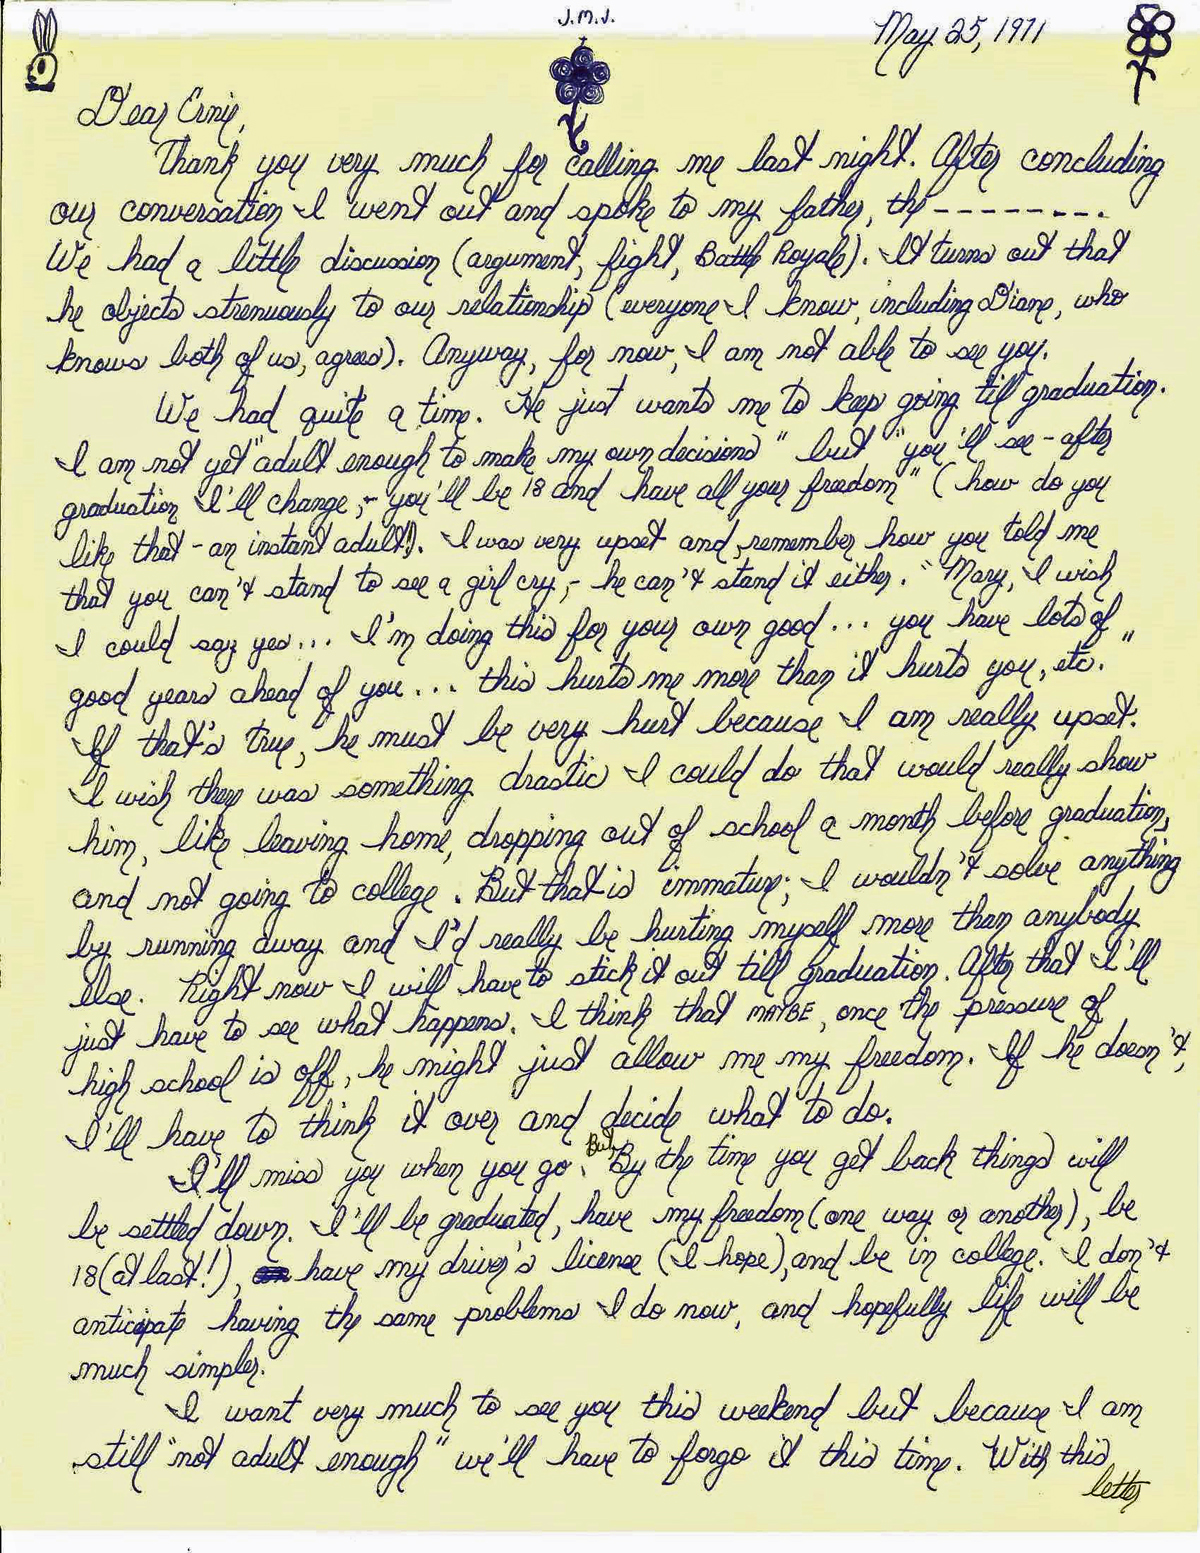 J.M.J.
May 25, 1971
Dear Ernie,
Thank you very much for calling me last night. After concluding
our conversation I went out and spoke to my father, the ---------.
We had a little discussion (argument, fight, Battle Royale). It turns out that
he objects strenuously to our relationship (everyone I know, including Diane, who
knows both of us, agrees). Anyway, for now, I am not able to see you.
We had quite a time. He just wants me to keep going till graduation.
I am not yet "adult enough to make my own decisions" but "you'll see - after
graduation I'll change, - you'll be 18 and have all your freedom" (how do you
like that - an instant adult!). I was very upset and, remember how you told me
that you can't stand to see a girl cry, - he can't stand it either. "Mary, I wish
I could say yes... I'm doing this for your own good... you have lots of
good years ahead of you... this hurts me more than it hurts you, etc."
If that's true, he must be very hurt because I am really upset.
I wish there was something drastic I could do that would really show
him, like leaving home, dropping out of school a month before graduation,
and not going to college. But that is immature; I wouldn't solve anything
by running away and I'd really be hurting myself more than anybody
else. Right now I will have to stick it out till graduation. After that I'll
just have to see what happens. I think that MAYBE, once the pressure of
high school is off, he might just allow me my freedom. If he doesn't,
I'll have to think it over and decide what to do.
I'll miss you when you go. But, By the time you get back things will
be settled down. I'll be graduated, have my freedom (one way or another), be
18 (at last!), have my driver's license (I hope), and be in college. I don't
anticipate having the same problems I do now, and hopefully life will be
much simpler.
I want very much to see you this weekend but because I am
still "not adult enough" we'll have to forgo it this time. With this
letter